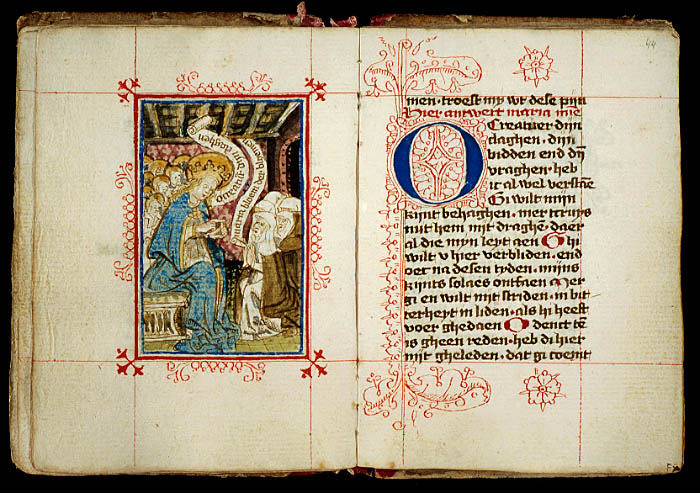 44
men · troest my wt dese pijn
Hier antwert maria mie
O Creatuer dijn
claghen · dijn
bidden end dyn
vraghen · heb
ic al wel verstaen
Gi wilt mijn
kijnt behaghen · mer tcruys
mit hem mit draghen · daer
al die mijn leyt aen Ghi
wilt v hier verbliden · end
oec na desen tyden · mijns
kijnts solaes ontfaen Mer
gi en wilt niet striden · in bit
terheyt in liden · als hi heeft
voer ghedaen O denct ten
is gheen reden · heb di hier
niet gheleden · dat gi coemt